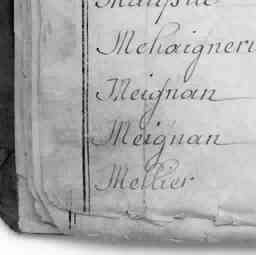 Mehaigneri
Meignan
Meignan
Mellier